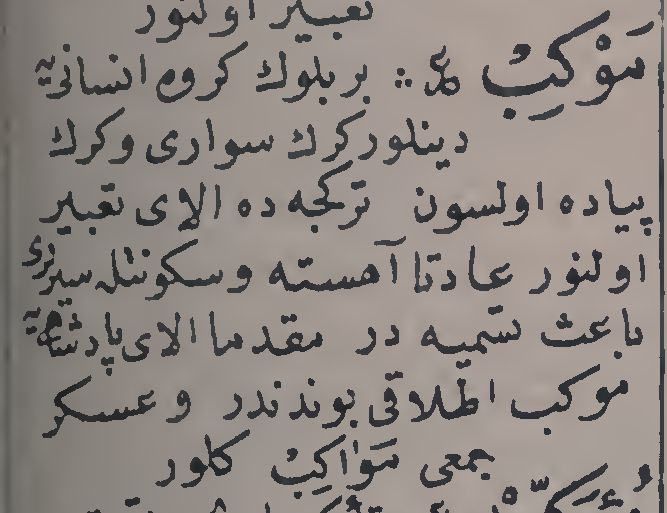 تعبير اولنور
مَوْكِبْ ع : بر بلوك كروه انسانيه
دينلور كرك سوارى وكرك
پياده اولسون تركجه ده الاى تعبير
اولنور عادتا آهسته وسكونتله سيرلرى
باعث تسميه در مقدما الاى پادشاهيه
موكب اطلاقى بوندندر و عسكر
جمعى مَوَاكِبْ كلور